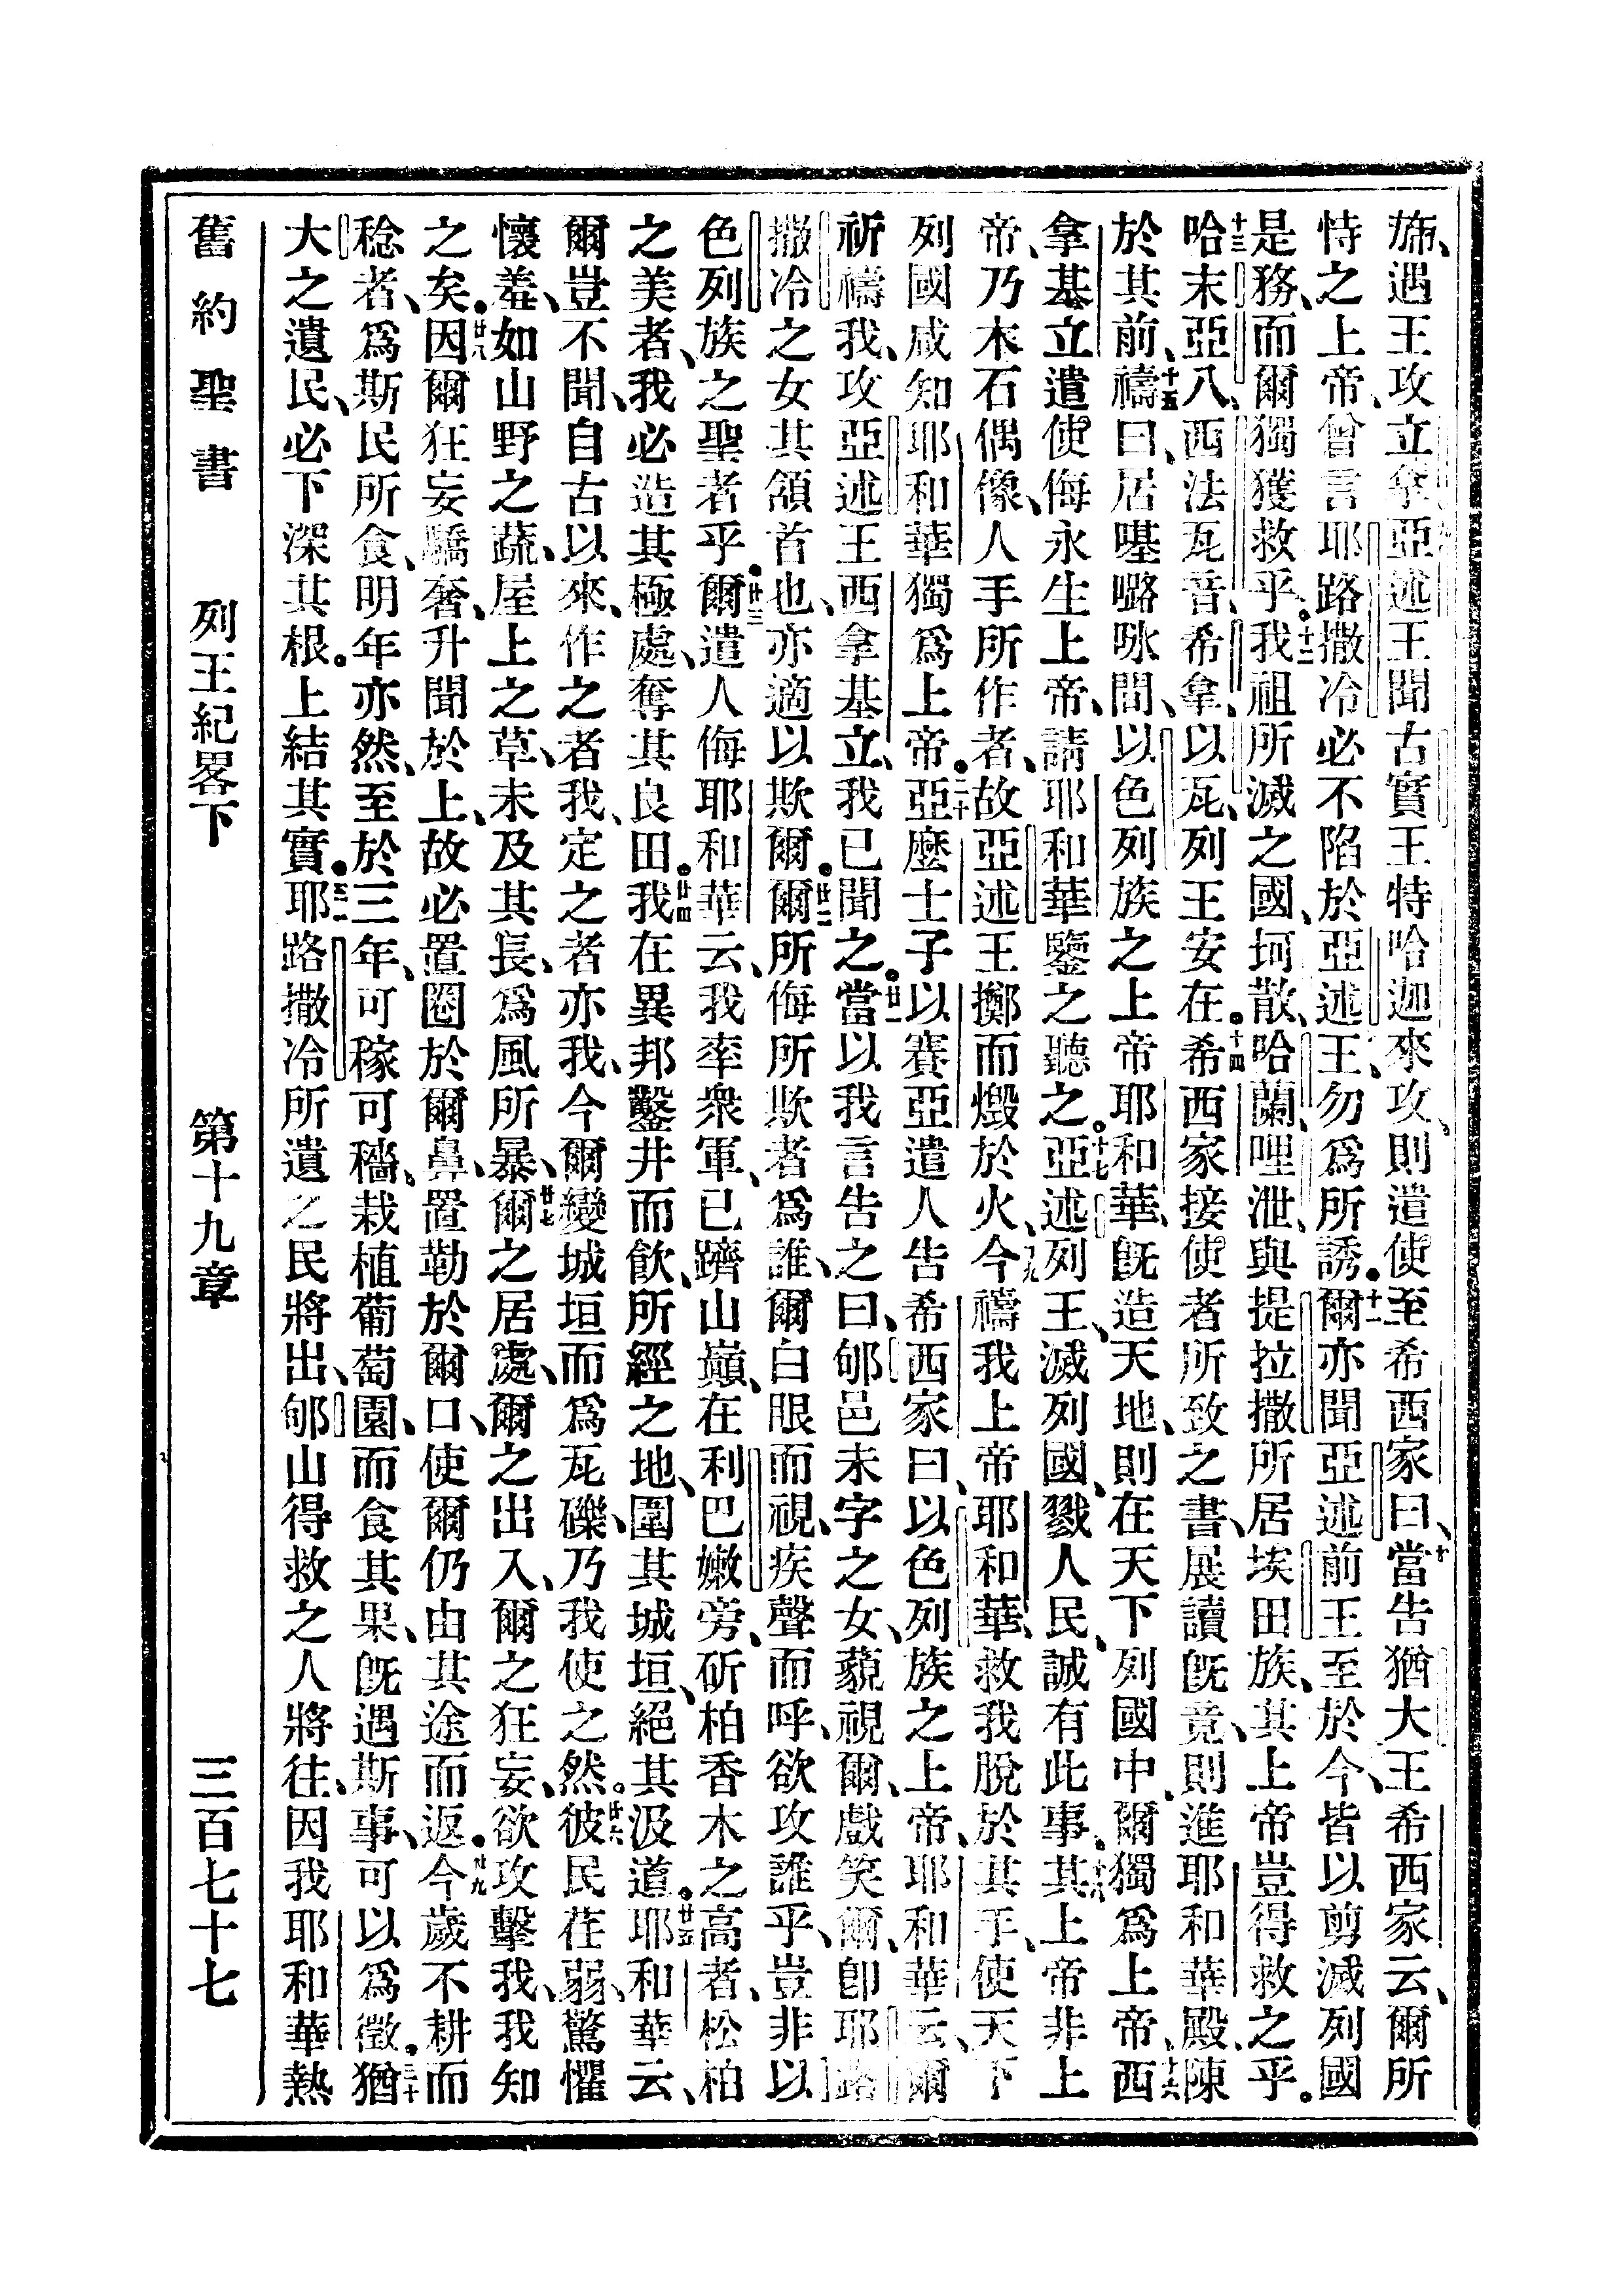 旆、遇王攻立拿、亞述王聞古實王特哈迦來攻、則遣使至希西家曰、十當告猶大王希西家云、爾所
恃之上帝、曾言耶路撒冷必不陷於亞述王、勿爲所誘。十一爾亦聞亞述前王至於今、皆以剪滅列國
是務、而爾獨獲救乎。十二我祖所滅之國、坷散、哈蘭、哩泄、與提拉撒所居埃田族、其上帝豈得救之乎。
十三哈末、亞八、西法瓦音、希拿、以瓦、列王安在。十四希西家接使者所致之書、展讀旣竟、則進耶和華殿、陳
於其前、十五禱曰、居𠼻嚕咏間、以色列族之上帝耶和華、旣造天地、則在天下列國中、爾獨爲上帝、十六西
拿基立遣使侮永生上帝、請耶和華鑒之聽之。十七亞述列王、滅列國、戮人民、誠有此事、十八其上帝非上
帝、乃木石偶像、人手所作者、故亞述王擲而燬於火、十九今禱我上帝耶和華、救我脫於其手、使天下
列國咸知耶和華獨爲上帝。二十亞麼士子以賽亞遣人告希西家曰、以色列族之上帝、耶和華云、爾
祈禱我、攻亞述王西拿基立、我已聞之。廿一當以我言告之曰、郇邑未字之女、藐視爾、戲笑爾、卽耶路
撒冷之女其頷首也、亦適以欺爾。廿二爾所侮所欺者爲誰、爾白眼而視、疾聲而呼、欲攻誰乎、豈非以
色列族之聖者乎。廿三爾遣人侮耶和華云、我率衆軍、已躋山巔、在利巴嫩旁、斫柏香木之高者、松柏
之美者、我必造其極處、奪其良田。廿四我在異邦鑿井而飮、所經之地、圍其城垣、絕其汲道。廿五耶和華云、
爾豈不聞、自古以來、作之者我、定之者亦我、今爾變城垣而爲瓦礫、乃我使之然。廿六彼民荏弱、驚懼
懷羞、如山野之蔬、屋上之草、未及其長、爲風所暴、廿七爾之居處、爾之出入、爾之狂妄、欲攻擊我、我知
之矣。廿八因爾狂妄驕奢、升聞於上、故必置圈於爾鼻、置勒於爾口、使爾仍由其途而返。廿九今歲不耕而
稔者、爲斯民所食、明年亦然、至於三年、可稼可穡、栽植葡萄園、而食其果、旣遇斯事、可以爲徵。三十猶
大之遺民、必下深其根。上結其實。三一耶路撒冷所遺之民將出、郇山得救之人將往、因我耶和華熱
舊約聖書　列王紀畧下　第十九章　三百七十七